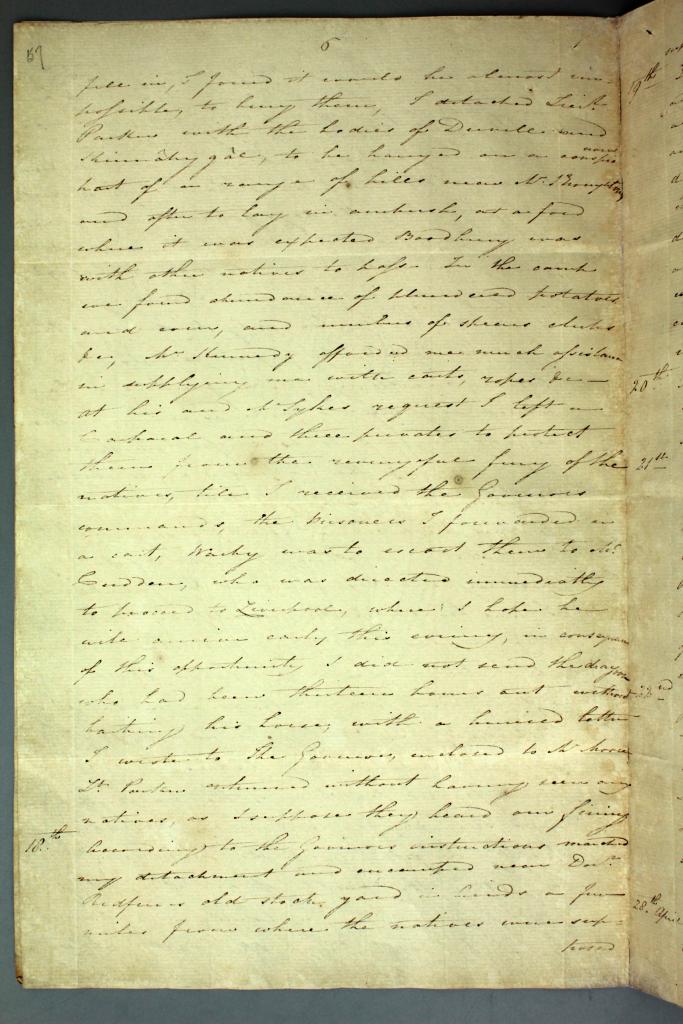 57
6
fell in, I found it would be almost im-
possible, to bury them, I detached Lieut
Parker with the bodies of Durelle and
Kinnahygal, to be hanged on a conspic
uous
part of a range of hills near Mr Broughtons
and after to lay in ambush, at a ford
where it was expected Boodbury was
with other natives to pass. In the camp
we found abundance of plundered potatoes
and corn, and numbers of spears clubs
&c, Mr Kennedy afforded me much assistance
in supplying me with carts, ropes &c —
At his and Mr Sykes request I left a
Corporal and three privates to protect
them from the revengeful fury of the
natives, till I received the Governors
commands, the Prisoners I forwarded in
a cart, was to escort them to Mr
who was directed immediatly
to proceed to Liverpool, where I hope he
will arrive early this evening, in consequence
of this opportunity I did not send the dragoon
who had been thirteen hours out without
baiting his horse, with a hurried letter
I wrote to The Governor, enclosed to Mr Moore
Lt Parker returned without having seen any
natives, as I suppose they heard our firing
18.th According to the Governors instructions marched
my detachment and encamped near Doc.r
Redferns old stock yard in hands a few
miles from where the natives were sup-
posed
19th
20th
21st
22nd
28.th April